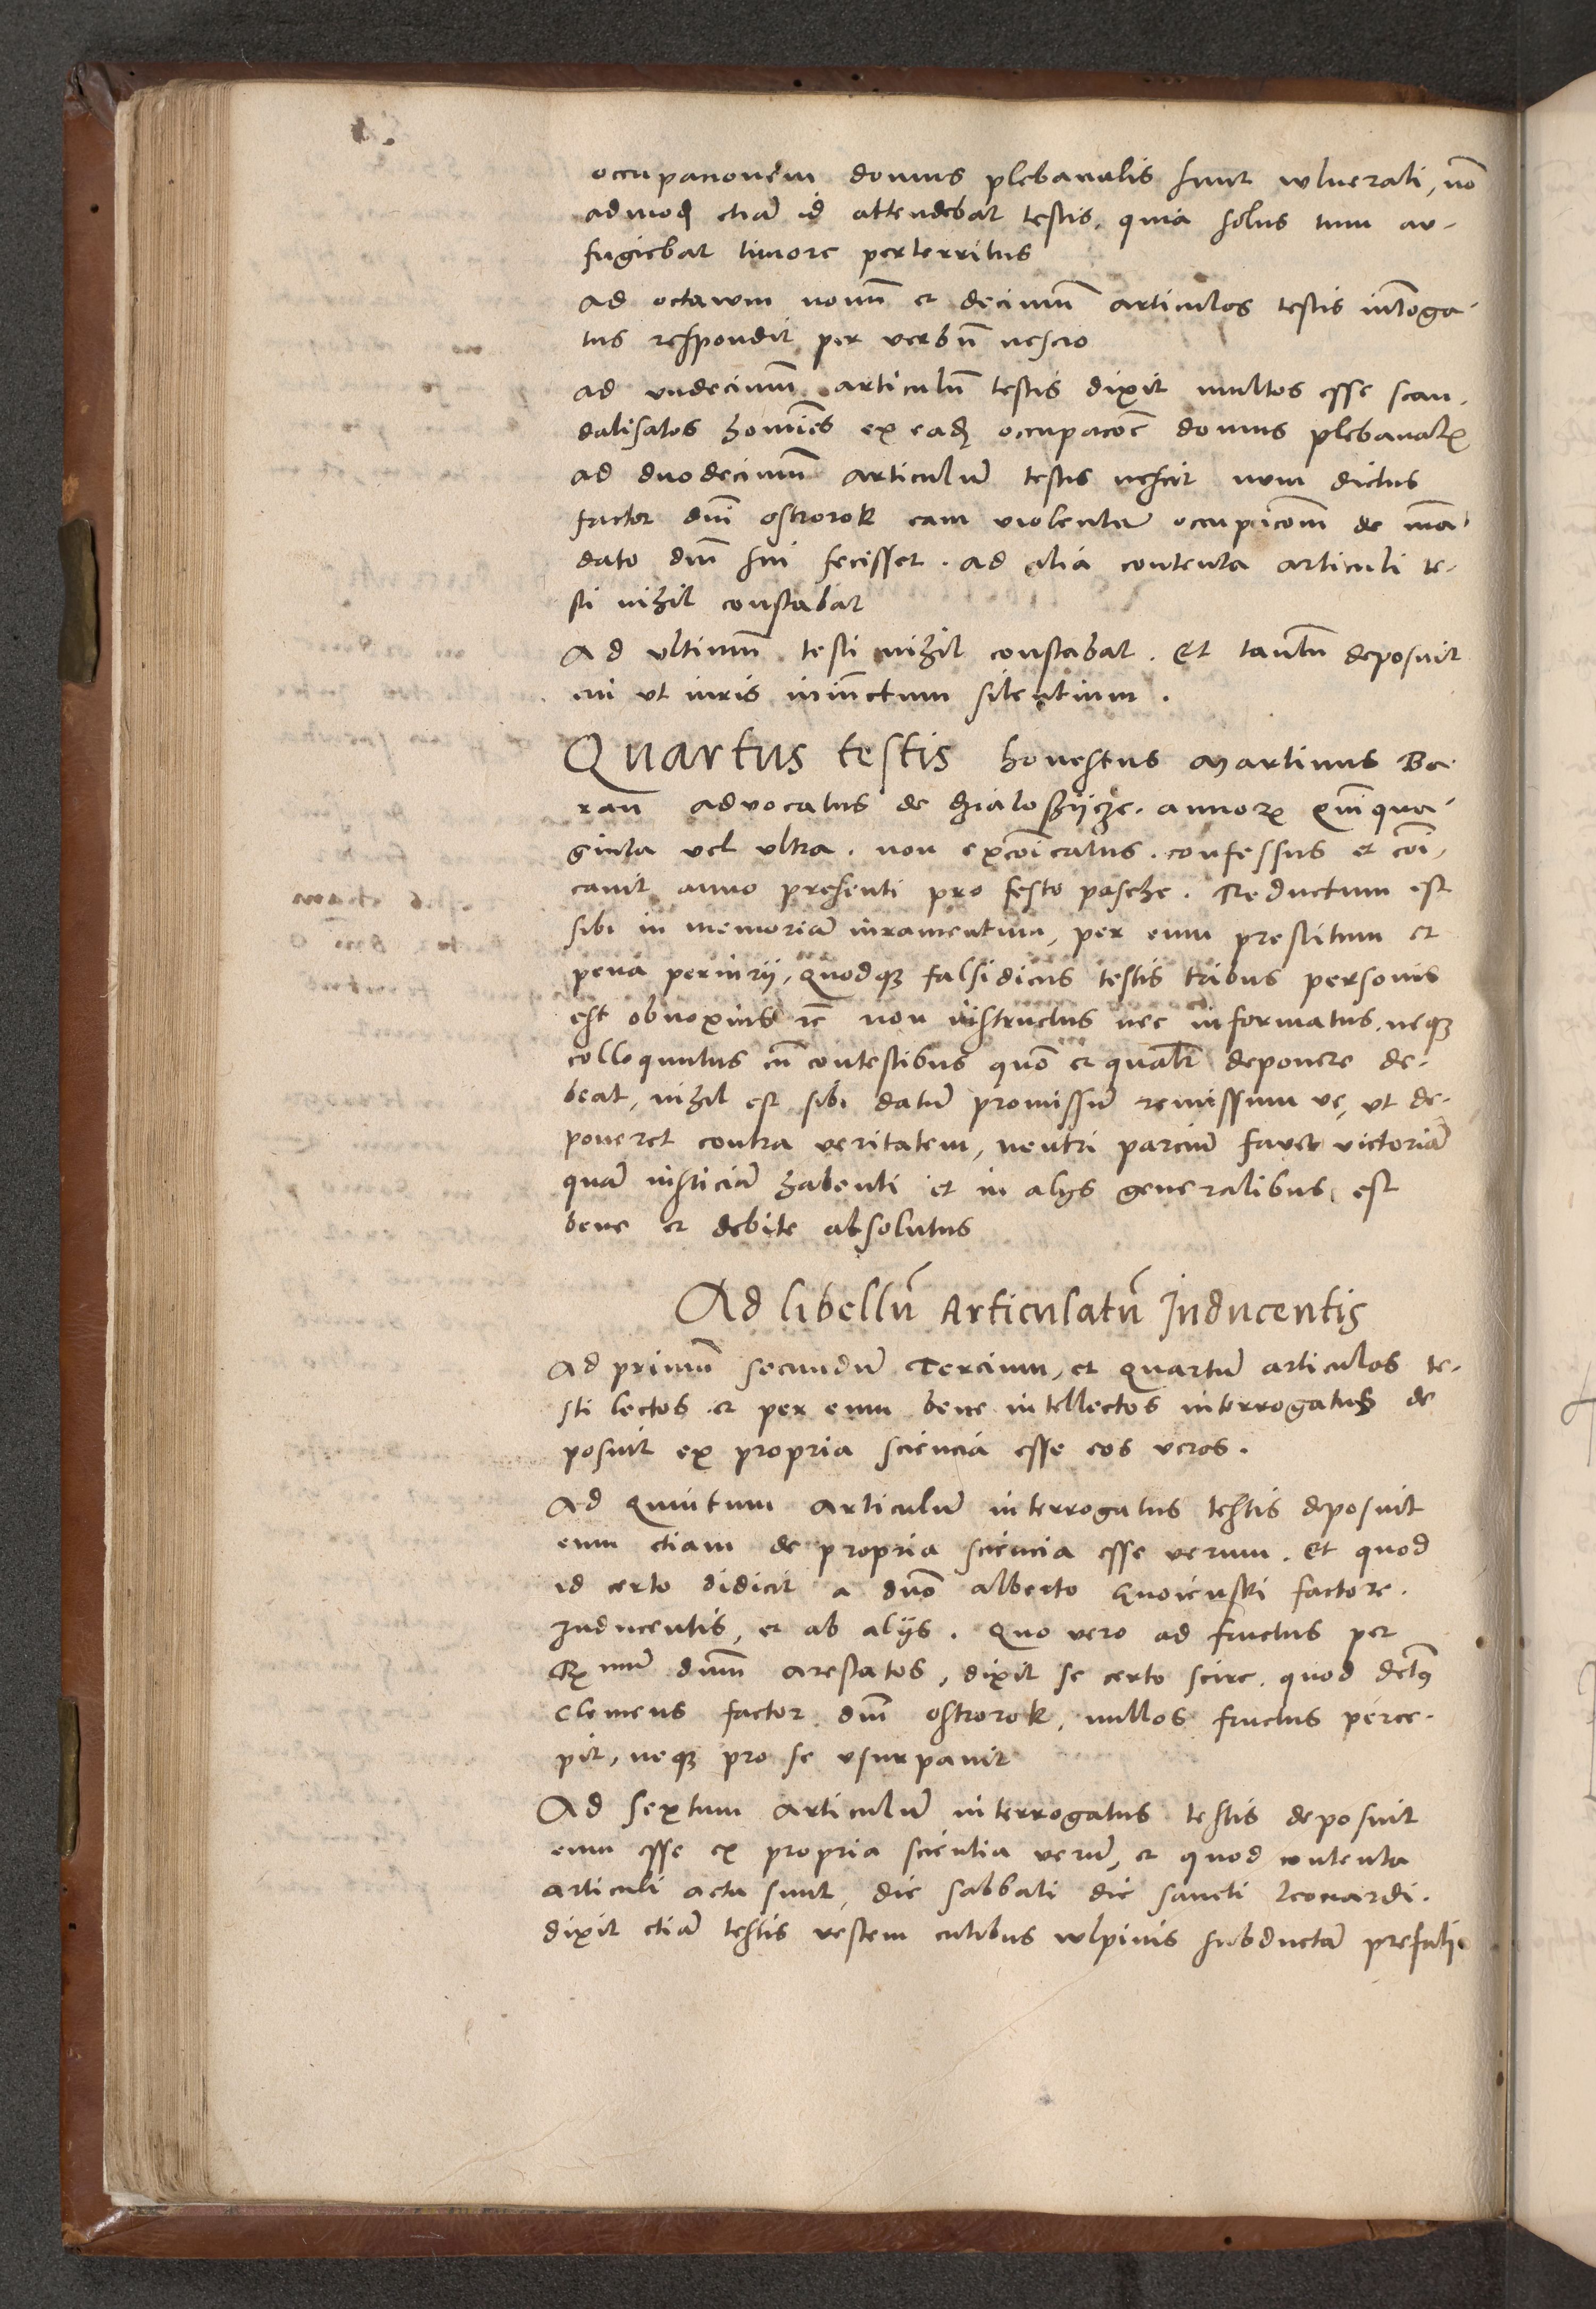 occupationem domus plebanalis sunt wlnerati, nō
admodū etiā id attendebat testis, quia solus tum au-
fugiebat timore perterritus
ad octavum nonū et decimū articulos testis intōga-
tus respondit per verbū nescio
ad undecimū articulū testis dixit multos esse scan-
dalisatos homīes ex eadē occupacōe domus plebanalis
ad duodecimū articulū testis nescit num dictus
factor dnī ostrorok eam violentā occupacōnem de mā-
dato dnī sui fecisset. ad alia contenta articuli te-
sti nihil constabat
Ad ultimū testi nihil constabat. Et tantū deposuit
cui ut iuris iniūctum silentium.
Quartus testis honestus Martinus Ba-
ran advocatus de annorꝝ quīqua-
ginta vel ultra. non excōicatus. confessus et cōi-
cavit anno presenti pro festo pasche. Reductum est
sibi in memoriā iuramentum, per eum prestitum et
pena periurij, quodqꝫ falsidicus testis tribus personis
est obnoxius ꝛc non instructus nec informatus, neqꝫ
colloquutus cū contestibus quō et qualr̄ deponere de-
beat, nihil est sibi datū promissū remissum ve, ut de-
poneret contra veritatem, neutri parciū favet victoriā
quā iusticiā habenti et in alijs generalibus, est
bene et debite absolutus
Ad libellū Articulatū Inducentis
Ad primū secundū Tercium, et quartū articulos te-
sti lectos et per eum bene intellectos interrogatus de
posuit ex propria sciencia esse eos veros.
Ad quintum articulū interrogatus testis deposuit
eum etiam de propria sciencia esse verum. Et quod
id certo didicit a dnō alberto Gnoienski factore
Inducentis, et ab alijs. Quo vero ad fructus per
Rmū dnum arestatos, dixit se certo scire, quod dctꝰ
Clemens factor dnī ostrorok, nullos fructus perce-
pit, neqꝫ pro se usurpavit
Ad sextum articulū interrogatus testis deposuit
eum esse ex propria scientia verū, et quod contenta
articuli acta sunt, die sabbati die sancti leonardi.
dixit etiā testis vestem cutibus wlpinis subductā prefati